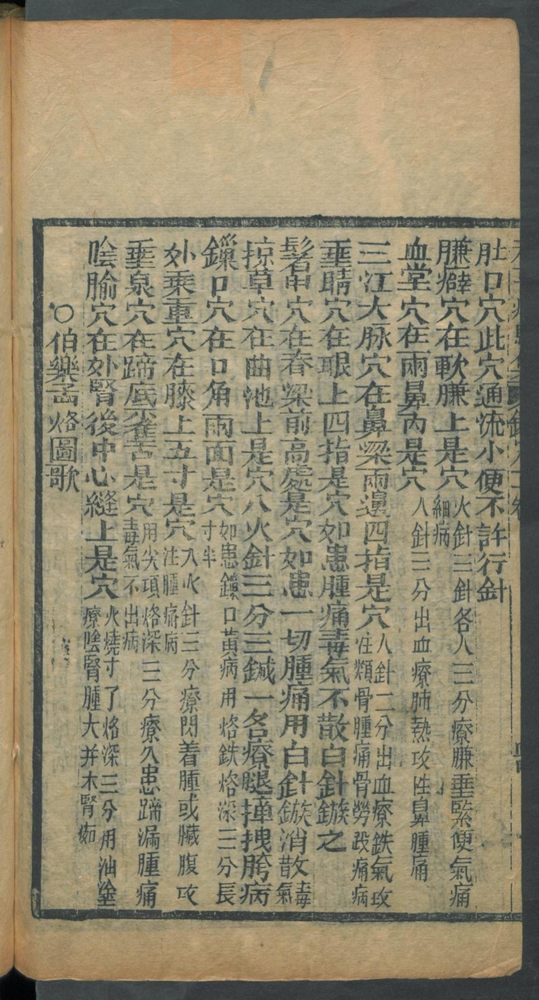 肚口穴此穴通流小便不許行針
膁癖穴在軟膁上是穴火針三針各入三分療膁垂緊便氣痛細病
血堂穴在兩鼻內是穴入針三分出血療肺熱攻注鼻腫痛
三江大脉穴在鼻梁兩邊四指是穴入針二分出血療鉄氣攻注頰骨腫痛骨勞跤痛病
垂睛穴在眼上四指是穴如患腫痛毒氣不散白針鏃之
髻甲穴在脊梁前高處是穴如患一切腫痛用白針鏃消散毒氣
掠草穴在曲池上是穴八火針三分三鍼一名療腿撞拽胯病
鎖口穴在口角兩面是穴如患鎖口黃病用烙鉄烙深三分長寸半
外乘重穴在膝上五寸是穴入火針三分療閃着腫或臟腹攻注腫痛病
垂泉穴在蹄底是穴用尖項烙深三分療久患蹄漏腫痛毒氣不出病
陰腧穴在外腎後中心縫上是穴火燒寸了烙深三分用油塗療陰腎腫大并木腎如
○伯樂畫烙圖歌